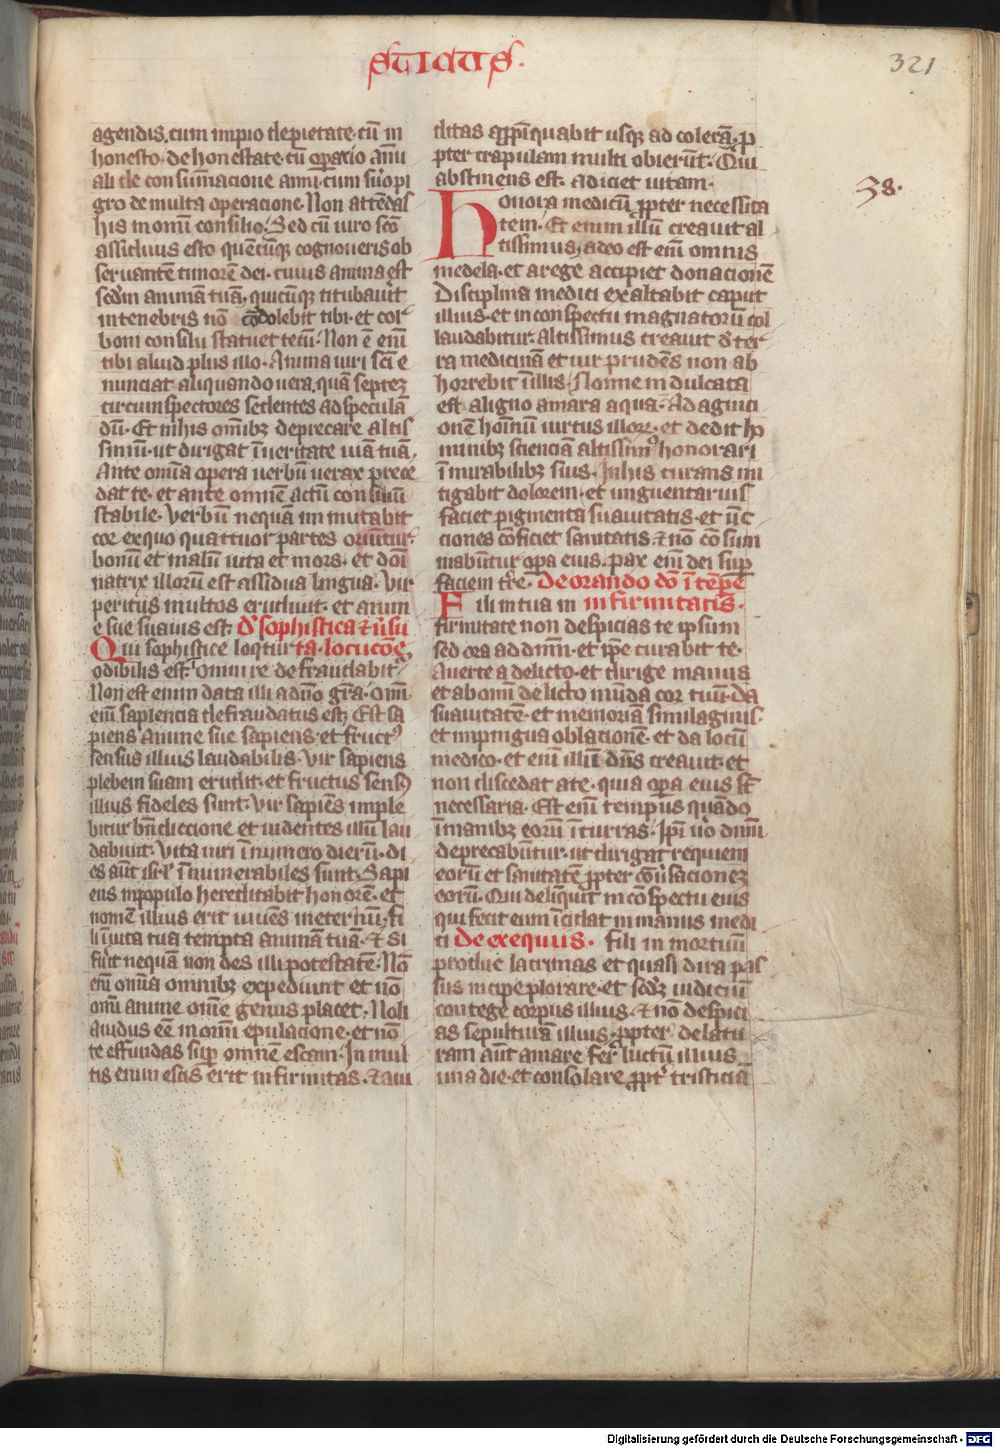 sticus.
321
agendis. cum impio de pietate. cū in
honesto. de honestate. cū op̄ario ānu
ali de consūmacione anni. cum suo pi
gro de multa operacione. Non attēdas
his in omni consilio. Sed cū uiro sc̄o
assiduus esto quēcūq; cognoueris ob
seruantē timorē dei. cuius anima est
scd̄m animam tuā, quicūq; titubauit
in tenebris nō cōdolebit tibi. et cor
boni consilii statuet tecū. Non ē enī
tibi aliud plus illo. Anima uiri sc̄i e
nunciat aliquando uera, quā septez
circumspectores sedentes ad speculā
dū. Et in his om̄ibz deprecare altis
simū. ut dirigat ī ueritate uiā tuā.
Ante om̄ia opera uerbū uerax prece
dat te. et ante omnē actū consiliū
stabile. Verbū nequā inmutabit
cor ex quo quattuor partes oriūtur.
bonū et malū uita et mors. et domi
natrix illorū est assidua lingua. Vir
peritus multos erudiuit. et anim
e sue suauis est. D' sophistica et iusu
Qui sophistice loqtur ta. locucōe,
odibilis est. omni re defraudabit
Non est enim data illi a dn̄o gr̄a. omī
enī sapiencia defraudatus est. Est sa
piens anime sue sapiens. et fructꝰ
sensus illius laudabilis. Vir sapiens
plebem suam erudit. et fructus sensꝰ
illius fideles sunt. Vir sapiens imple
bitur bn̄diccione et uidentes illū lau
dabunt. Vita uiri ī numero dierū. di
es aūt isrl' īnumerabiles sunt. Sapi
ens in populo hereditabit honorē. et
nomē illius erit uiuēs in eternū. fi
li ī uita tua tempta animā tuā. et si
fuīt nequā non des illi potestatē. Nō
enī omīa omnibz expediunt et nō
omī anime omē genus placet. Noli
auidus eē in omni epulacione. et nō
te effundas sup omnē escam. In mul
tis enim escis erit infirmitas. et aui
ditas app̄inquabit usq; ad colerā. p̄
pter crapulam multi obierūt. Qui
abstinens est. adiciet uitam.
58.
Honora medicū pp̄ter necessita
tem. Et enim illū creauit al
tissimus, a deo est enī omnis
medela. et a rege accipiet donacionē
Disciplina medici exaltabit caput
illius. et in conspectu magnatorū col
laudabitur. Altissimus creauit d' ter
ra medicinā et uir prudēs non ab
horrebit ī illis. Nonne indulcata
est a ligno amara aqua. Ad agnici
onē hoīnū uirtus illorz. et dedit ho
minibz scienciā altissimꝰ honorari
ī mirabilibz suis. In his curans mi
tigabit dolorem. et unguentarius
faciet pigmenta suauitatis. et ūc
ciones cōficiet sanitatis. et nō cōsum
mabūtur opa eius. Pax enī dei sup
faciem tr̄e. De orando dō ī tēpe
Fili in tua in infirmitatis.
firmitate non despicias te ipsum
sed ora ad dn̄m. et ip̄e curabit te.
Auerte a delicto. et dirige manus
et ab omī delicto mūda cor tuū. Da
suauitatē. et memoriā similaginis.
et inpingua oblationē. et da locū
medico. et enī illū dn̄s creauit. et
non discedat a te. quia opa eius st̄
necessaria. Est enī tempus quādo
ī manibz eorū ī curras. Ipī uō dnm
deprecabūtur. ut dirigat requiem
eorū et sanitatē pp̄ter cōūsacionez
eorū. Qui delinquit in cōspectu eius
qui fecit eum īcidat in manus medi
ci De exequiis. Fili in mortuū
produc lacrimas et quasi dira pas
sus incipe plorare. et scdz iudiciū
contege corpus illius. et nō despici
as sepulturā illius. pp̄ter delatu
ram aūt amare fer luctū illius
una die. et consolare pp̄t' tristiciā
Digitalisierung gefördert durch die Deutsche Forschungsgemeinschaft - DFG